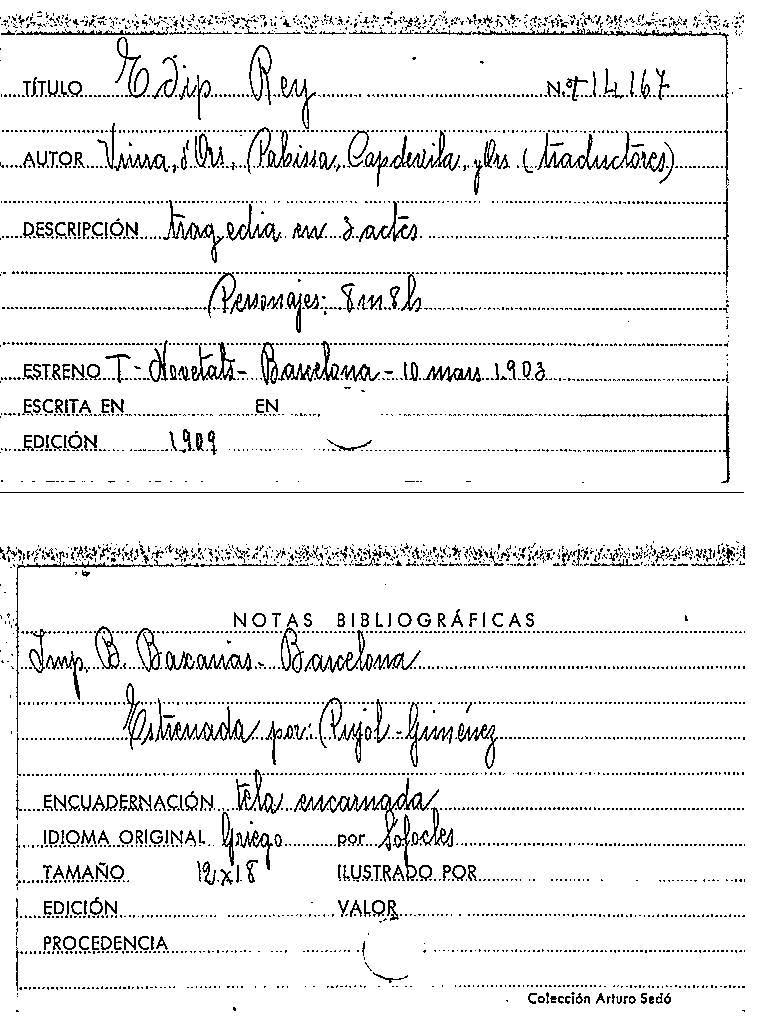 TÍTULO Edip Rey N.º 14167
AUTOR Viura, d'Ors, Pabissa, Capdevila, y Ors (traductores)
DESCRIPCIÓN tragedia en 3 actes
Personajes: 8 m 8 h
ESTRENO T - Novetats - Barcelona - 10 mars 1903
ESCRITA EN EN
EDICIÓN 1909
NOTAS BIBLIOGRÁFICAS
Imp. B. Baxarias - Barcelona
Estrenada por: Pujol - Giménez
ENCUADERNACIÓN tela encarnada
IDIOMA ORIGINAL Griego por Sofocles
TAMAÑO 12x18 ILUSTRADO POR
EDICIÓN VALOR
PROCEDENCIA
Colección Arturo Sedó